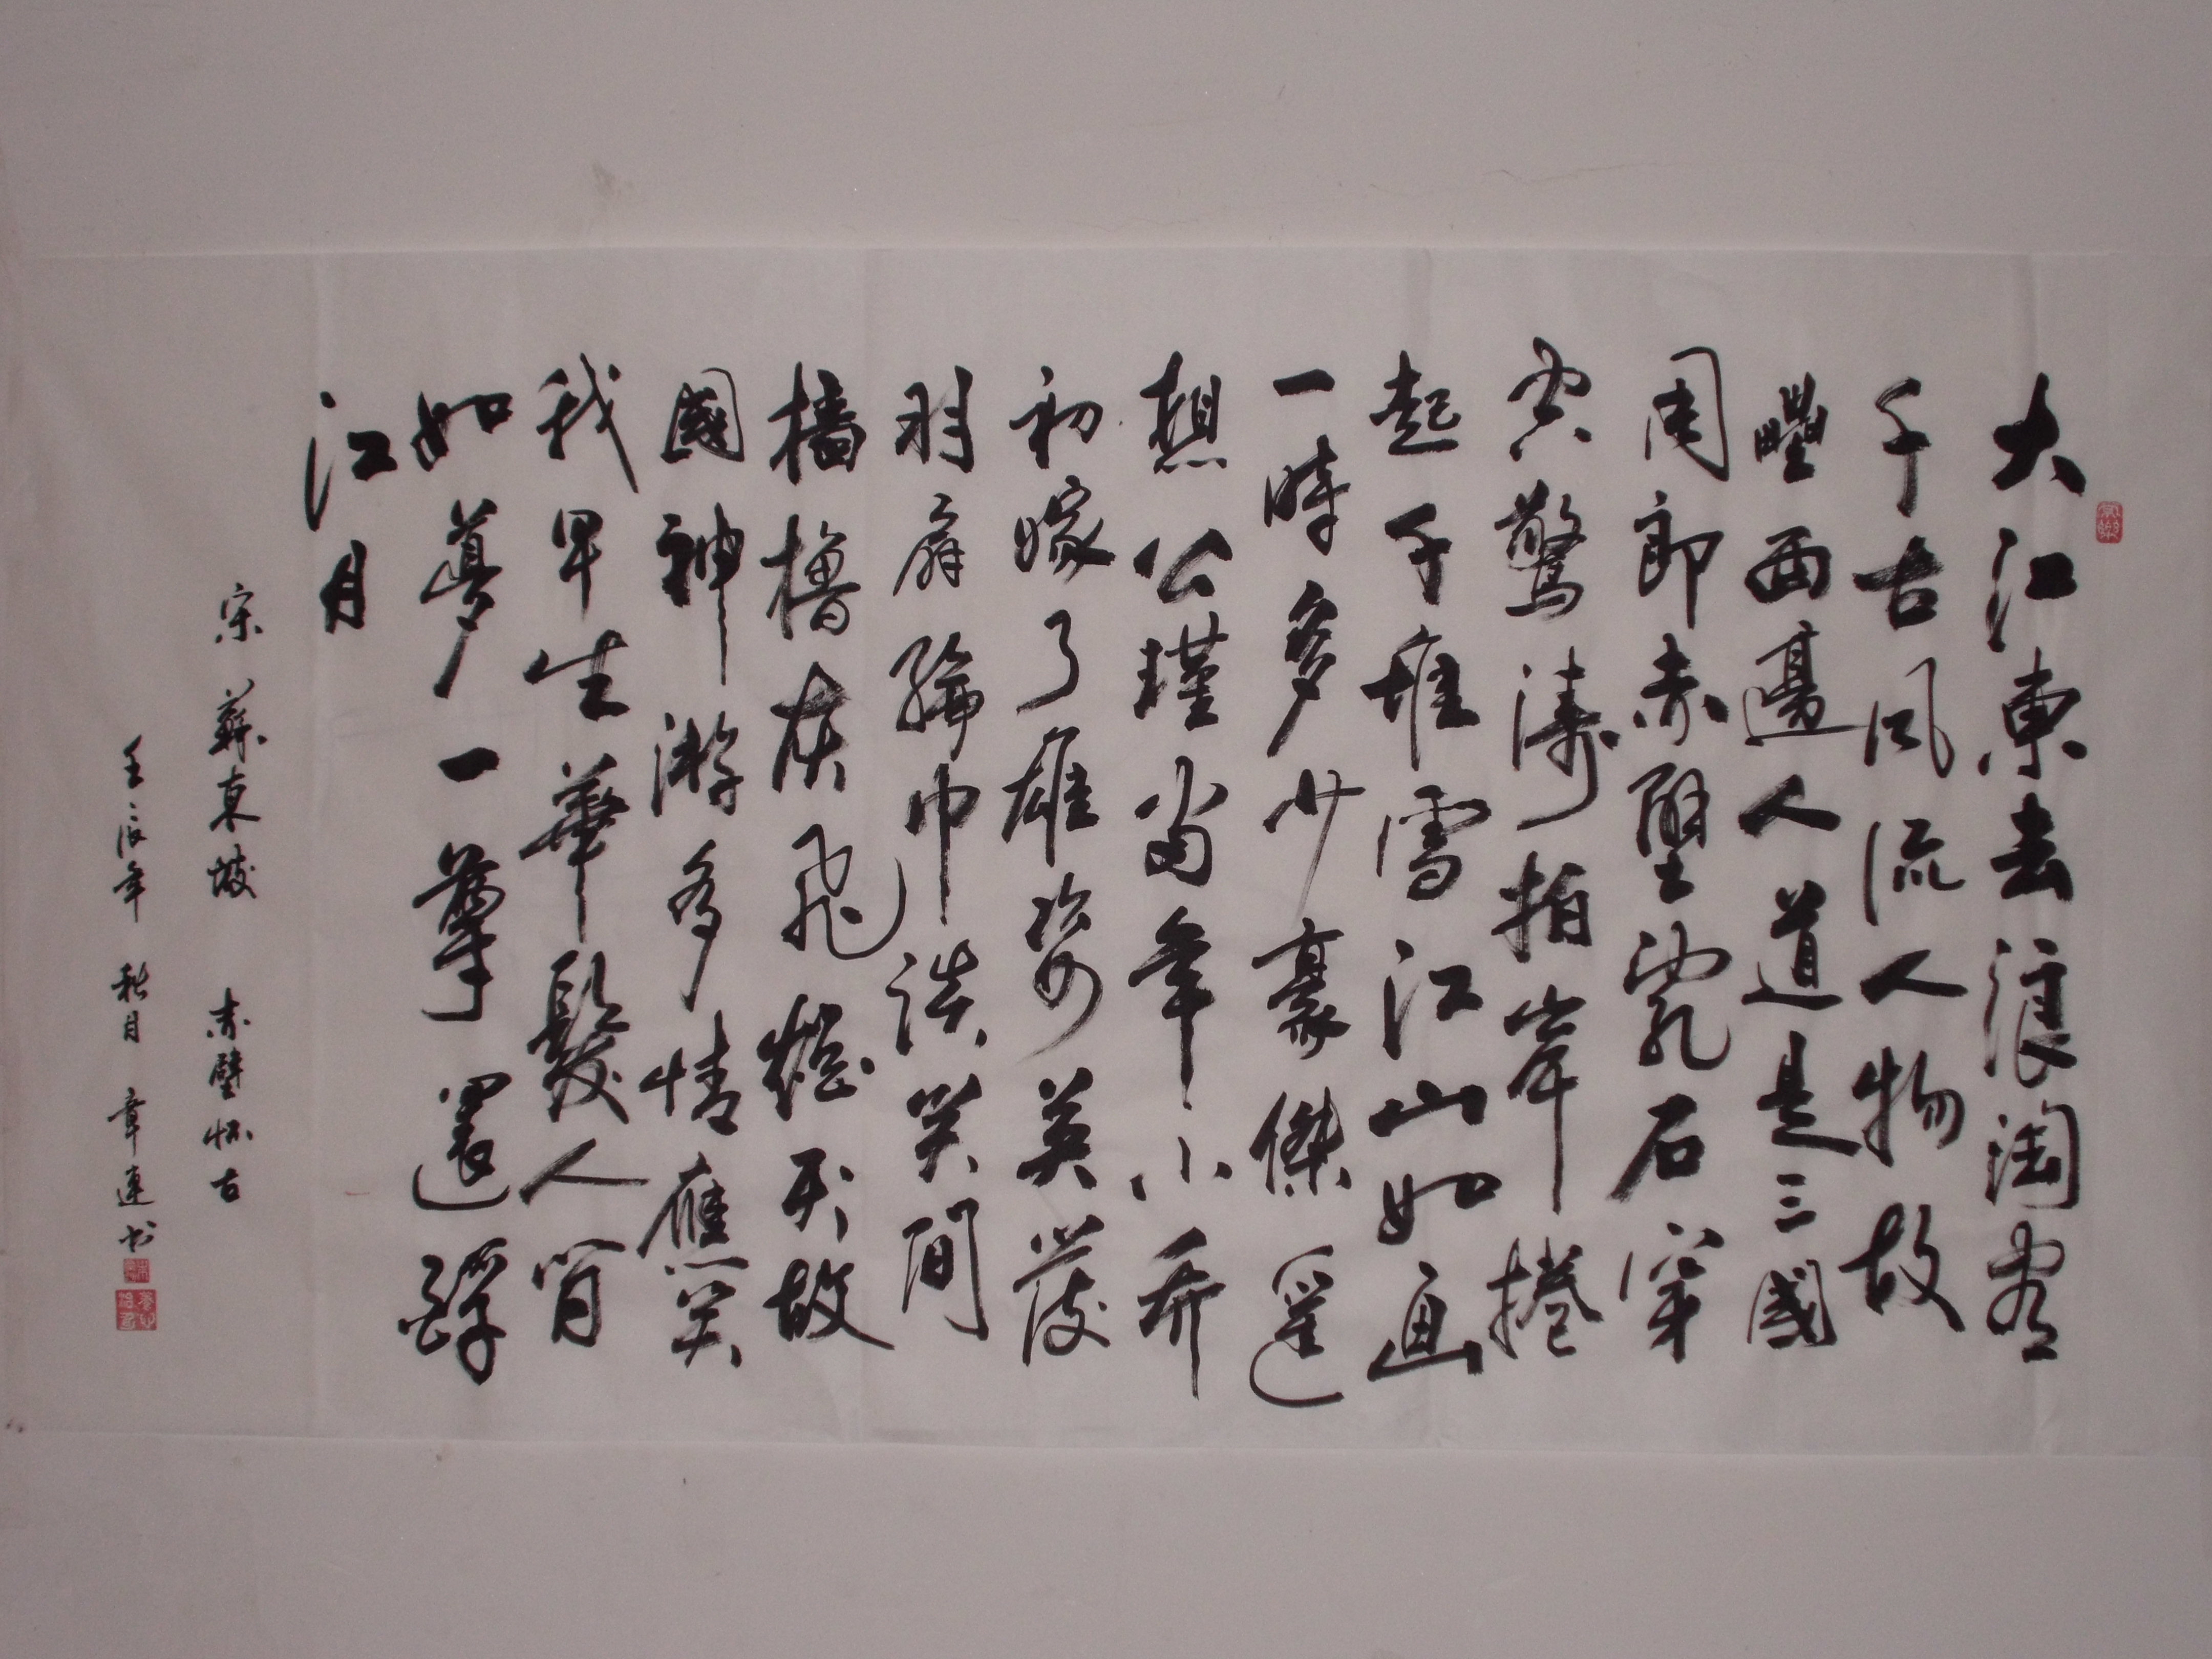 大江東去浪淘盡
千古風流人物故
壘西邊人道是三國
周郎赤壁亂石穿
空驚濤拍岸捲
起千堆雪江山如画
一時多少豪傑遥
想公瑾當年小喬
初嫁了雄姿英發
羽扇綸巾談笑間
檣櫓灰飛煙灭故
國神游多情應笑
我早生華髮人間
如夢一尊還酹
江月
宋 蘇東坡 赤壁怀古
壬辰年 秋月 章連书